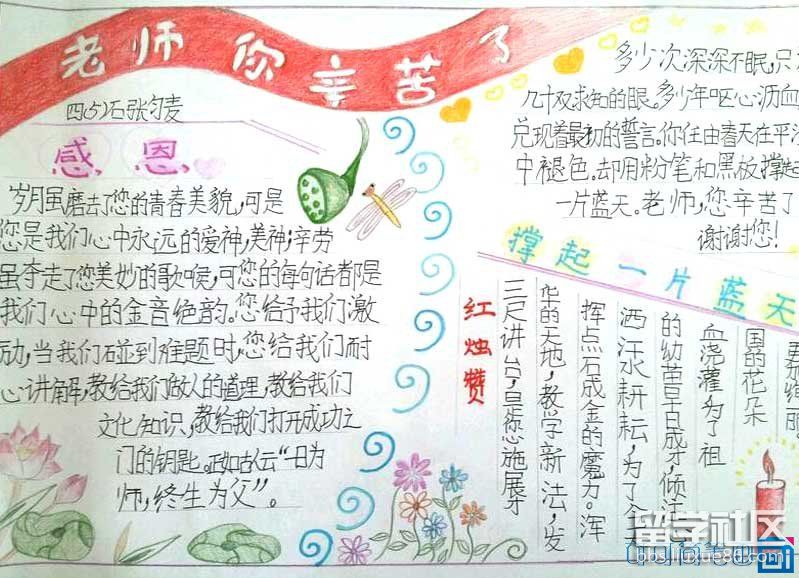 老师 你 辛苦了
四(5)石张匀麦
感恩
岁月虽磨去了您的青春美貌,可是
您是我们心中永远的爱神,美神;辛劳
虽夺走了您美妙的歌喉,可您的每句话都是
我们心中的金音绝韵。您给予我们激
励,当我们碰到难题时,您给我们耐
心讲解,教给我们做人的道理,教给我们
文化知识,教给我们打开成功之
门的钥匙。正如古人云“一日为
师,终生为父”。
多少次深深不眠,只
几十双求知的眼。多少年呕心沥血
兑现着最初的誓言。你任由春天在平
中褪色。却用粉笔和黑板撑起
一片蓝天。老师,您辛苦了
谢谢您!
撑起一片蓝天
红烛赞
三尺讲台,是您施展才
华的天地,教学新法,发
挥点石成金的魔力。浑
洒汗水耕耘,为了今天
的幼苗早日成才,倾注
血浇灌为了祖
国的花朵
留学社区
bbs.liuxue86.com